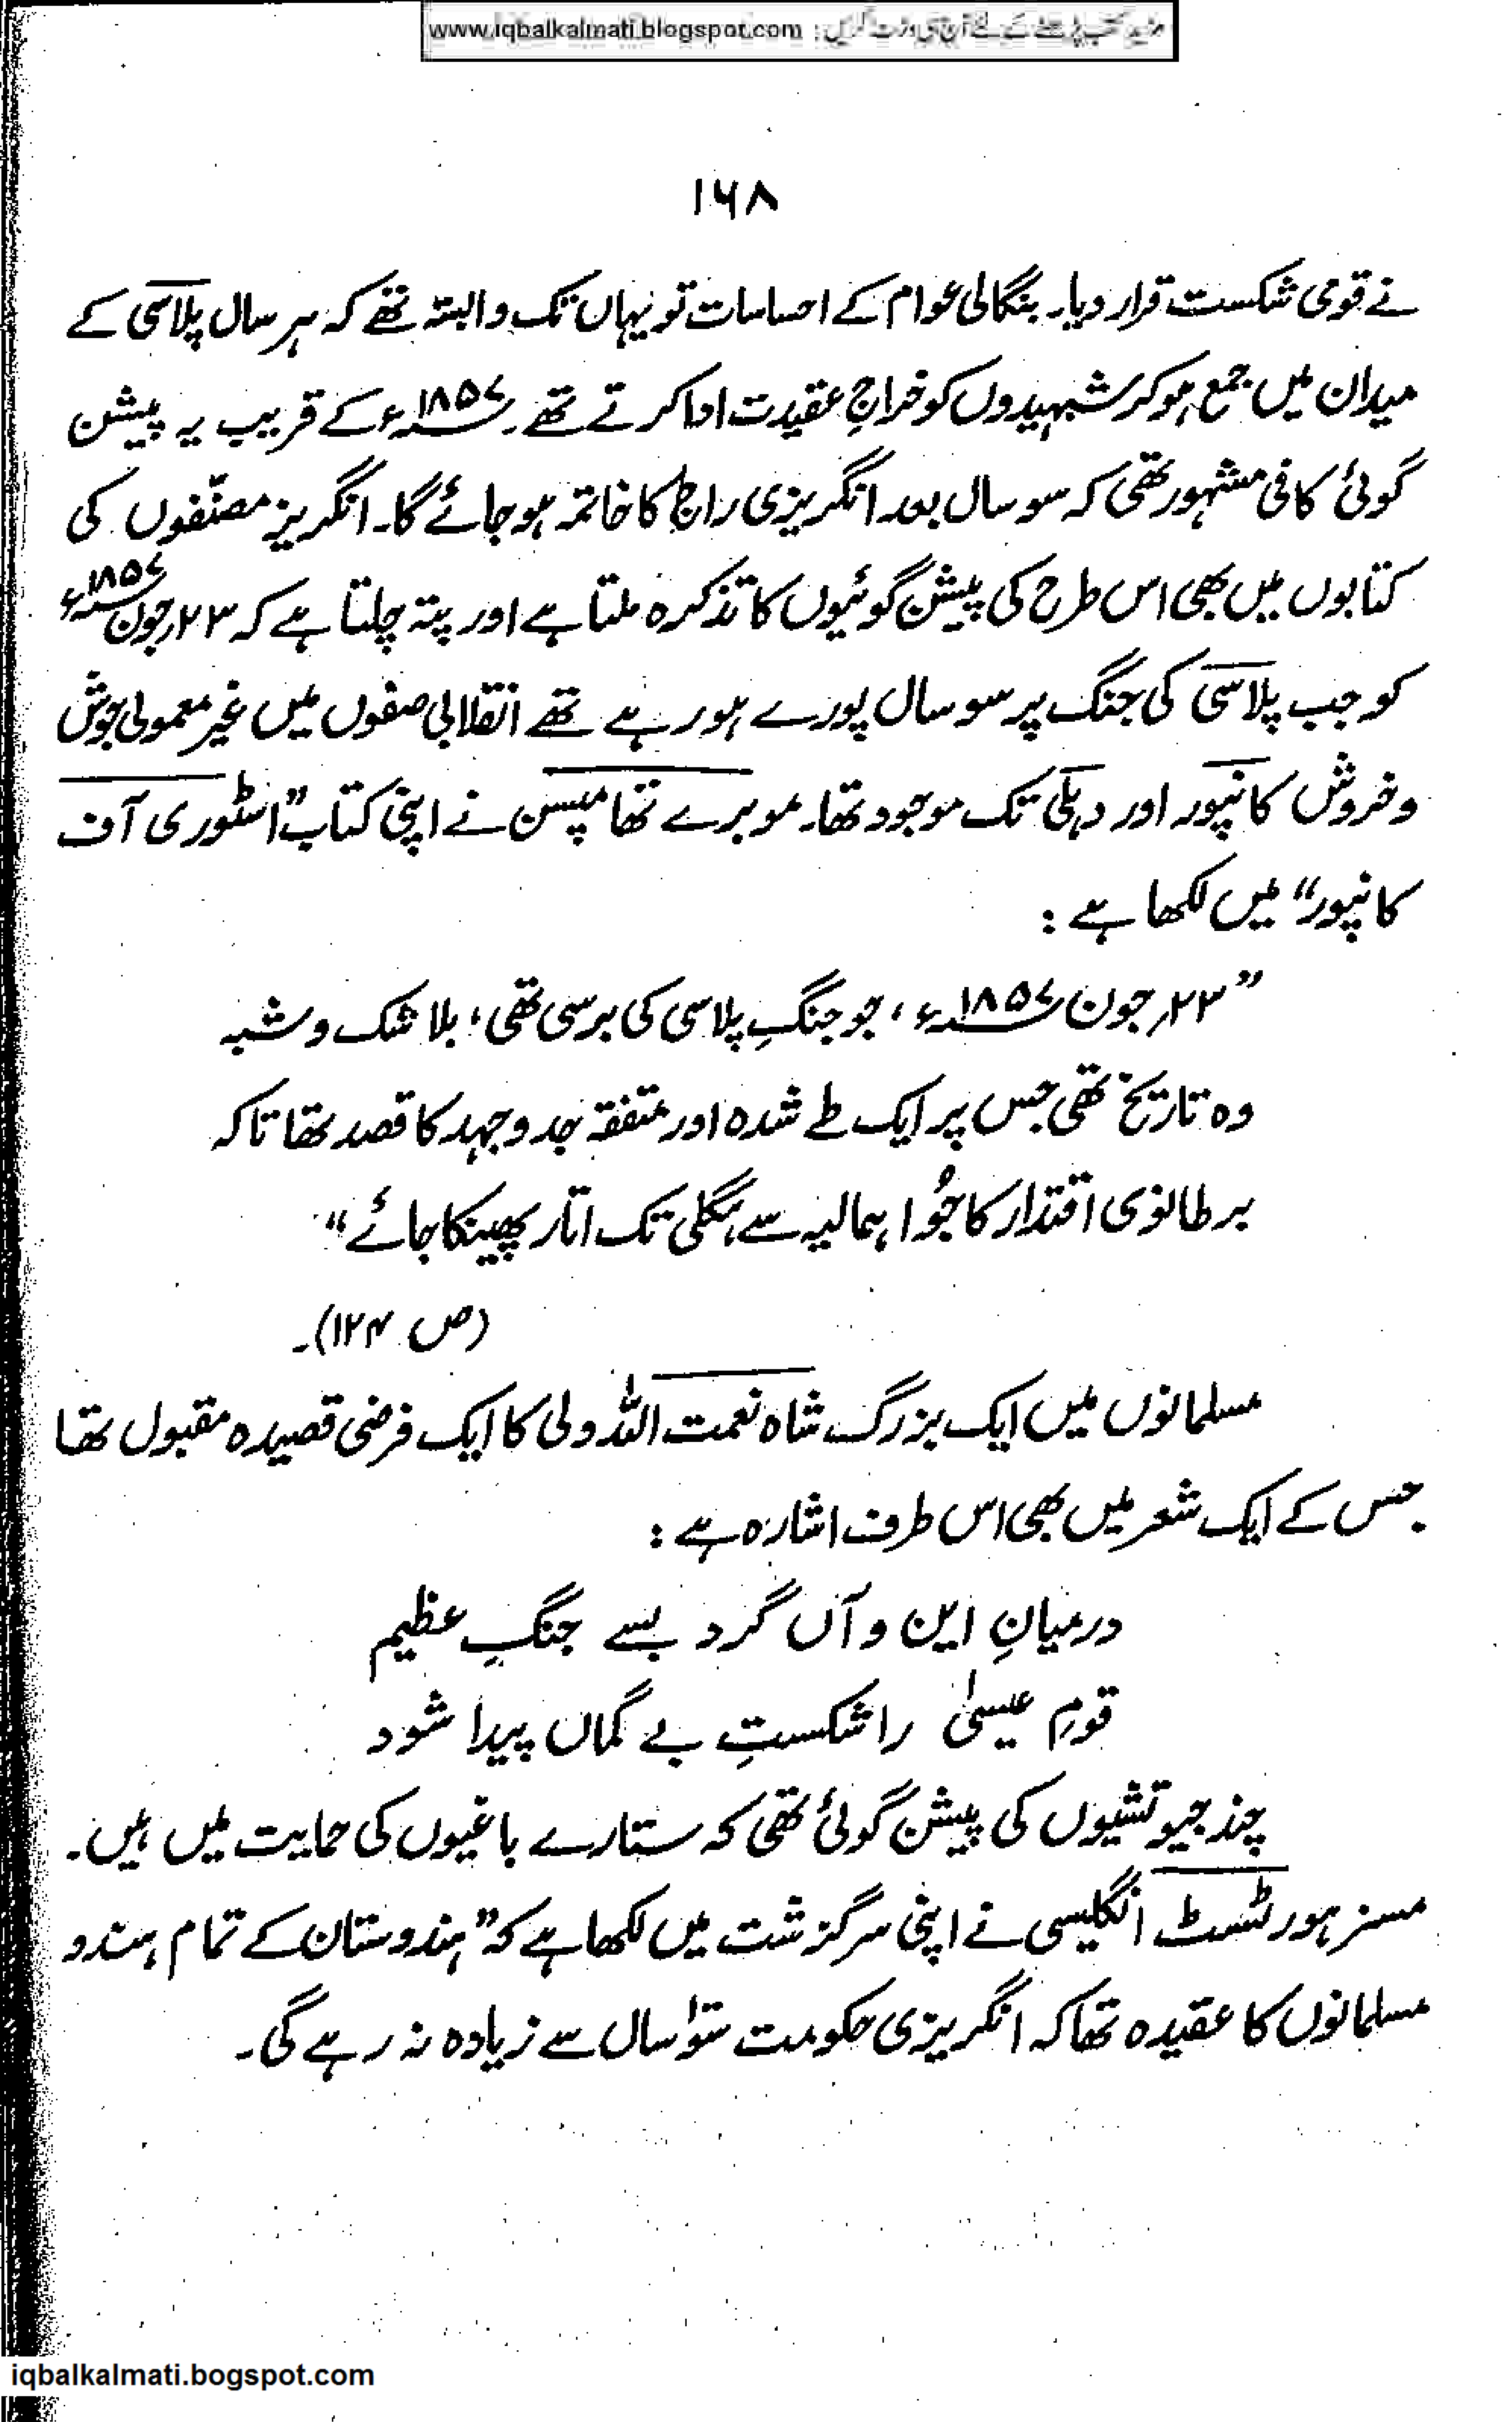 مزید کتب پڑھنے کے لئے آج ہی وزٹ کریں : www.iqbalkalmati.blogspot.com
۱۶۸
نے قومی شکست قرار دیا۔ بنگالی عوام کے احساسات تو یہاں تک وابستہ تھے کہ ہر سال پلاسی کے
میدان میں جمع ہو کر شہیدوں کو خراجِ عقیدت ادا کرتے تھے۔ ۱۸۵۷ء کے قریب یہ پیشن
گوئی کافی مشہور تھی کہ سو سال بعد انگریزی راج کا خاتمہ ہو جائے گا۔ انگریز مصنّفوں کی
کتابوں میں بھی اس طرح کی پیشن گوئیوں کا تذکرہ ملتا ہے اور پتہ چلتا ہے کہ ۲۳؍جون ۱۸۵۷ء
کو جب پلاسی کی جنگ پر سو سال پورے ہو رہے تھے انقلابی صفوں میں غیر معمولی جوش
و خروش کانپور اور دہلی تک موجود تھا۔ موبرے تھامپسن نے اپنی کتاب ”اسٹوری آف
کانپور“ میں لکھا ہے :
”۲۳؍جون ۱۸۵۷ء، جو جنگِ پلاسی کی برسی تھی، بلا شک و شبہ
وہ تاریخ تھی جس پر ایک طے شدہ اور متفقہ جد و جہد کا قصد تھا تاکہ
برطانوی اقتدار کا جُوا ہمالیہ سے ہگلی تک اتار پھینکا جائے“
(ص ۱۲۴)۔
مسلمانوں میں ایک بزرگ شاہ نعمت اللہ ولی کا ایک فرضی قصیدہ مقبول تھا
جس کے ایک شعر میں بھی اس طرف اشارہ ہے :
درمیانِ این و آں گرد بسے جنگِ عظیم
قومِ عیسیٰ را شکستِ بے گماں پیدا شود
چند جیوتشیوں کی پیشن گوئی تھی کہ ستارے باغیوں کی حمایت میں ہیں۔
مسز ہورٹسٹ انگلیسی نے اپنی سرگزشت میں لکھا ہے کہ ”ہندوستان کے تمام ہندو
مسلمانوں کا عقیدہ تھا کہ انگریزی حکومت سَو سال سے زیادہ نہ رہے گی۔
iqbalkalmati.bogspot.com